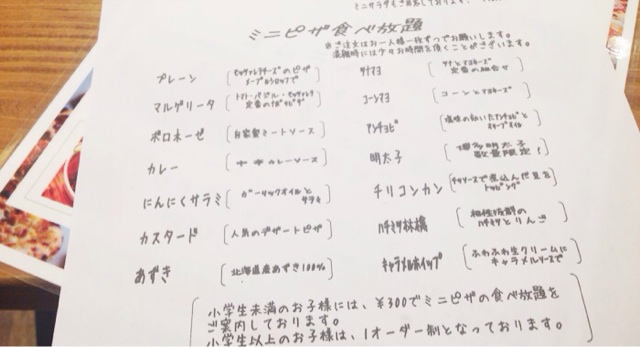 ミニピザ食べ放題
※ご注文はお一人様一枚ずつでお願いします。
混雑時には少々お時間を頂くことがございます。
プレーン
モッツァレラチーズのピザ
メープルシロップで
マルゲリータ
トマト・バジル・モッツァレラ
定番のナポリピザ
ボロネーゼ
自家製ミートソース
カレー
カレーソース
にんにくサラミ
ガーリックオイルと
サラミ
カスタード
人気のデザートピザ
あずき
北海道産あずき100%
ツナマヨ
ツナとマヨネーズ
定番の組合せ
コーンマヨ
コーンとマヨネーズ
アンチョビ
塩味の効いたアンチョビと
オリーブオイル
明太子
博多明太子
数量限定!
チリコンカン
チリソースで煮込んだ豆を
トッピング
ハチミツ林檎
相性抜群の
ハチミツとりんご
キャラメルホイップ
ふわふわ生クリームに
キャラメルソースで
小学生未満のお子様には、¥300でミニピザの食べ放題を
ご案内しております。
小学生以上のお子様は、1オーダー制となっております。